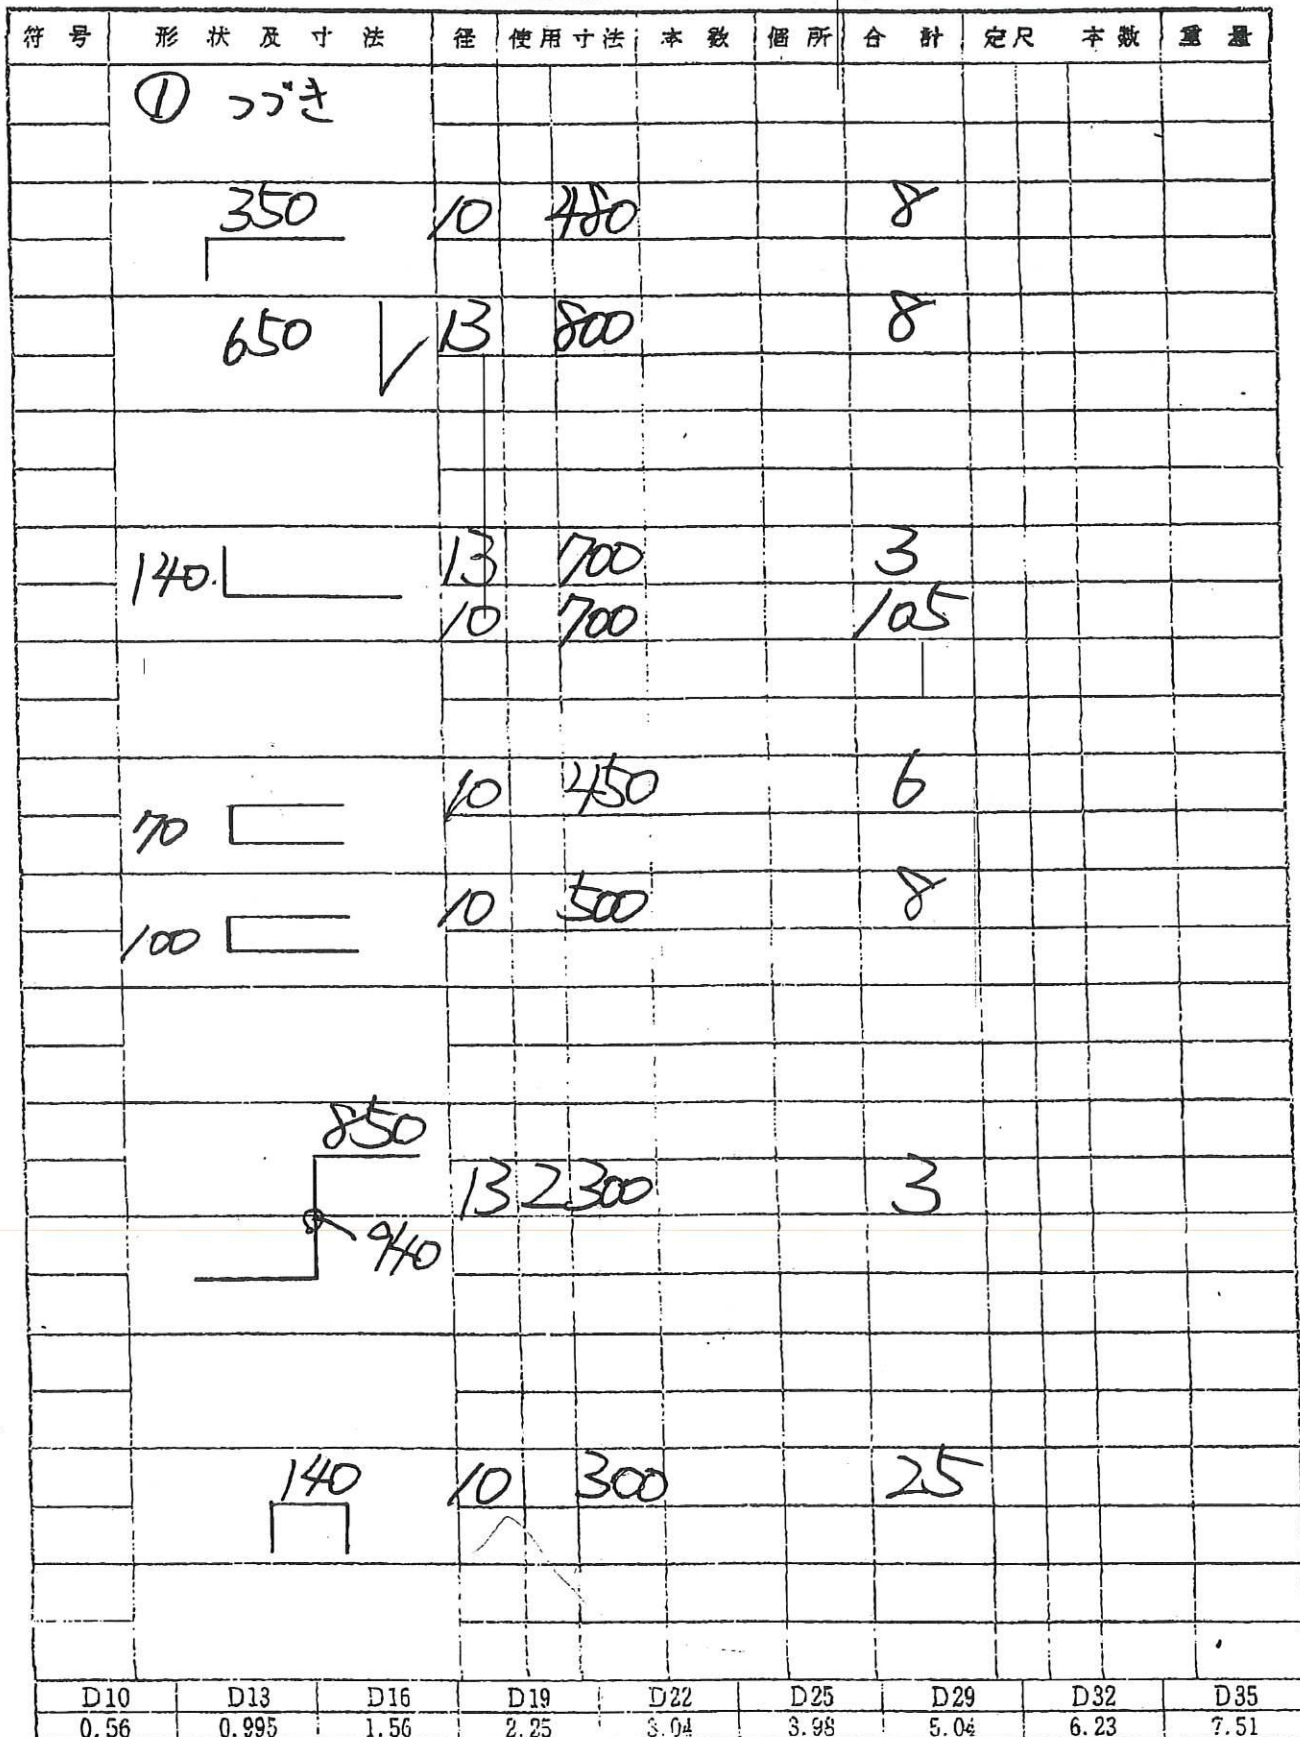 符号 形状及寸法 径 使用寸法 本数 個所 合計 定尺 本数 重量
① つづき
350 10 480 8
650 13 800 8
140. 13 700 3
10 700 105
70 10 450 6
100 10 500 8
850
13 2300 3
940
140 10 300 25
D10 D13 D16 D19 D22 D25 D29 D32 D35
0.56 0.995 1.56 2.25 3.04 3.98 5.04 6.23 7.51